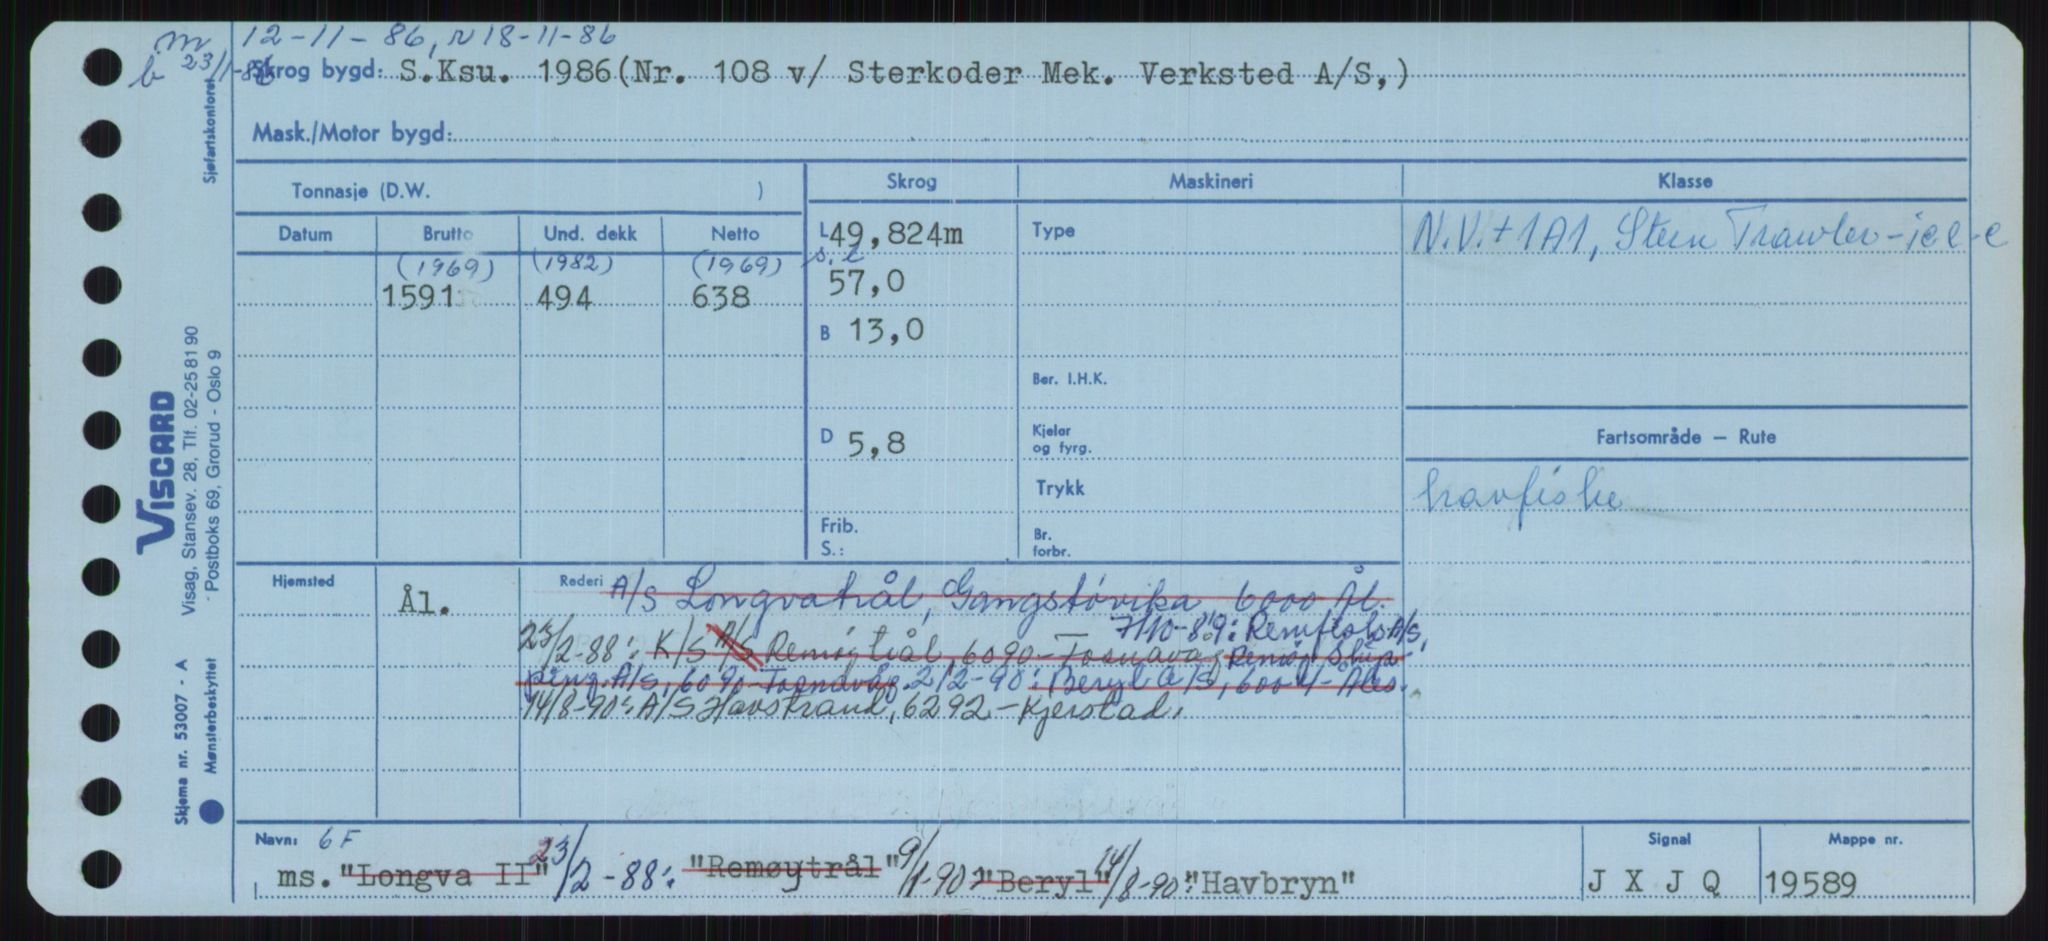 m 12-11-86, n 18-11-86
b 23/1-86
Skrog bygd: S.Ksu. 1986(Nr. 108 v/ Sterkoder Mek. Verksted A/S,)
Mask./Motor bygd:
Sjøfartskontoret
Tonnasje (D.W. )
Skrog Maskineri Klasse
Datum Brutto Und. dekk Netto
L 49,824m
Type
N.V. + 1A1, Stern Trawler-ice-c
(1969) (1982) (1969)
s.l
57,0
1591 494 638
B 13,0
Ber. I.H.K.
D 5,8
Kjeler
og fyrg.
Fartsområde – Rute
Trykk
havfiske
Frib.
S.:
Br.
forbr.
VISCARD
Visag, Stansev. 28, Tlf. 02-25 81 90
Postboks 69, Grorud - Oslo 9
Skjema nr. 53007 - A
Mønsterbeskyttet
Hjemsted Ål.
Rederi A/S Longvatrål, Gangstøvika 6000 Ål.
7/10-89: Remfisk A/S,
23/2-88: K/S A/S Remøytrål, 6090-Fosnavåg Remøy Ship-
ping A/S, 6090-Fosnavåg. 2/2-90: Beryl A/S, 6004-Åles.
14/8-90: A/S Havstrand, 6292-Kjerstad.
Navn: 6F
Signal
Mappe nr.
ms. "Longva II" 23/2-88: "Remøytrål" 9/1-90: "Beryl" 14/8-90: "Havbryn"
J X J Q
19589